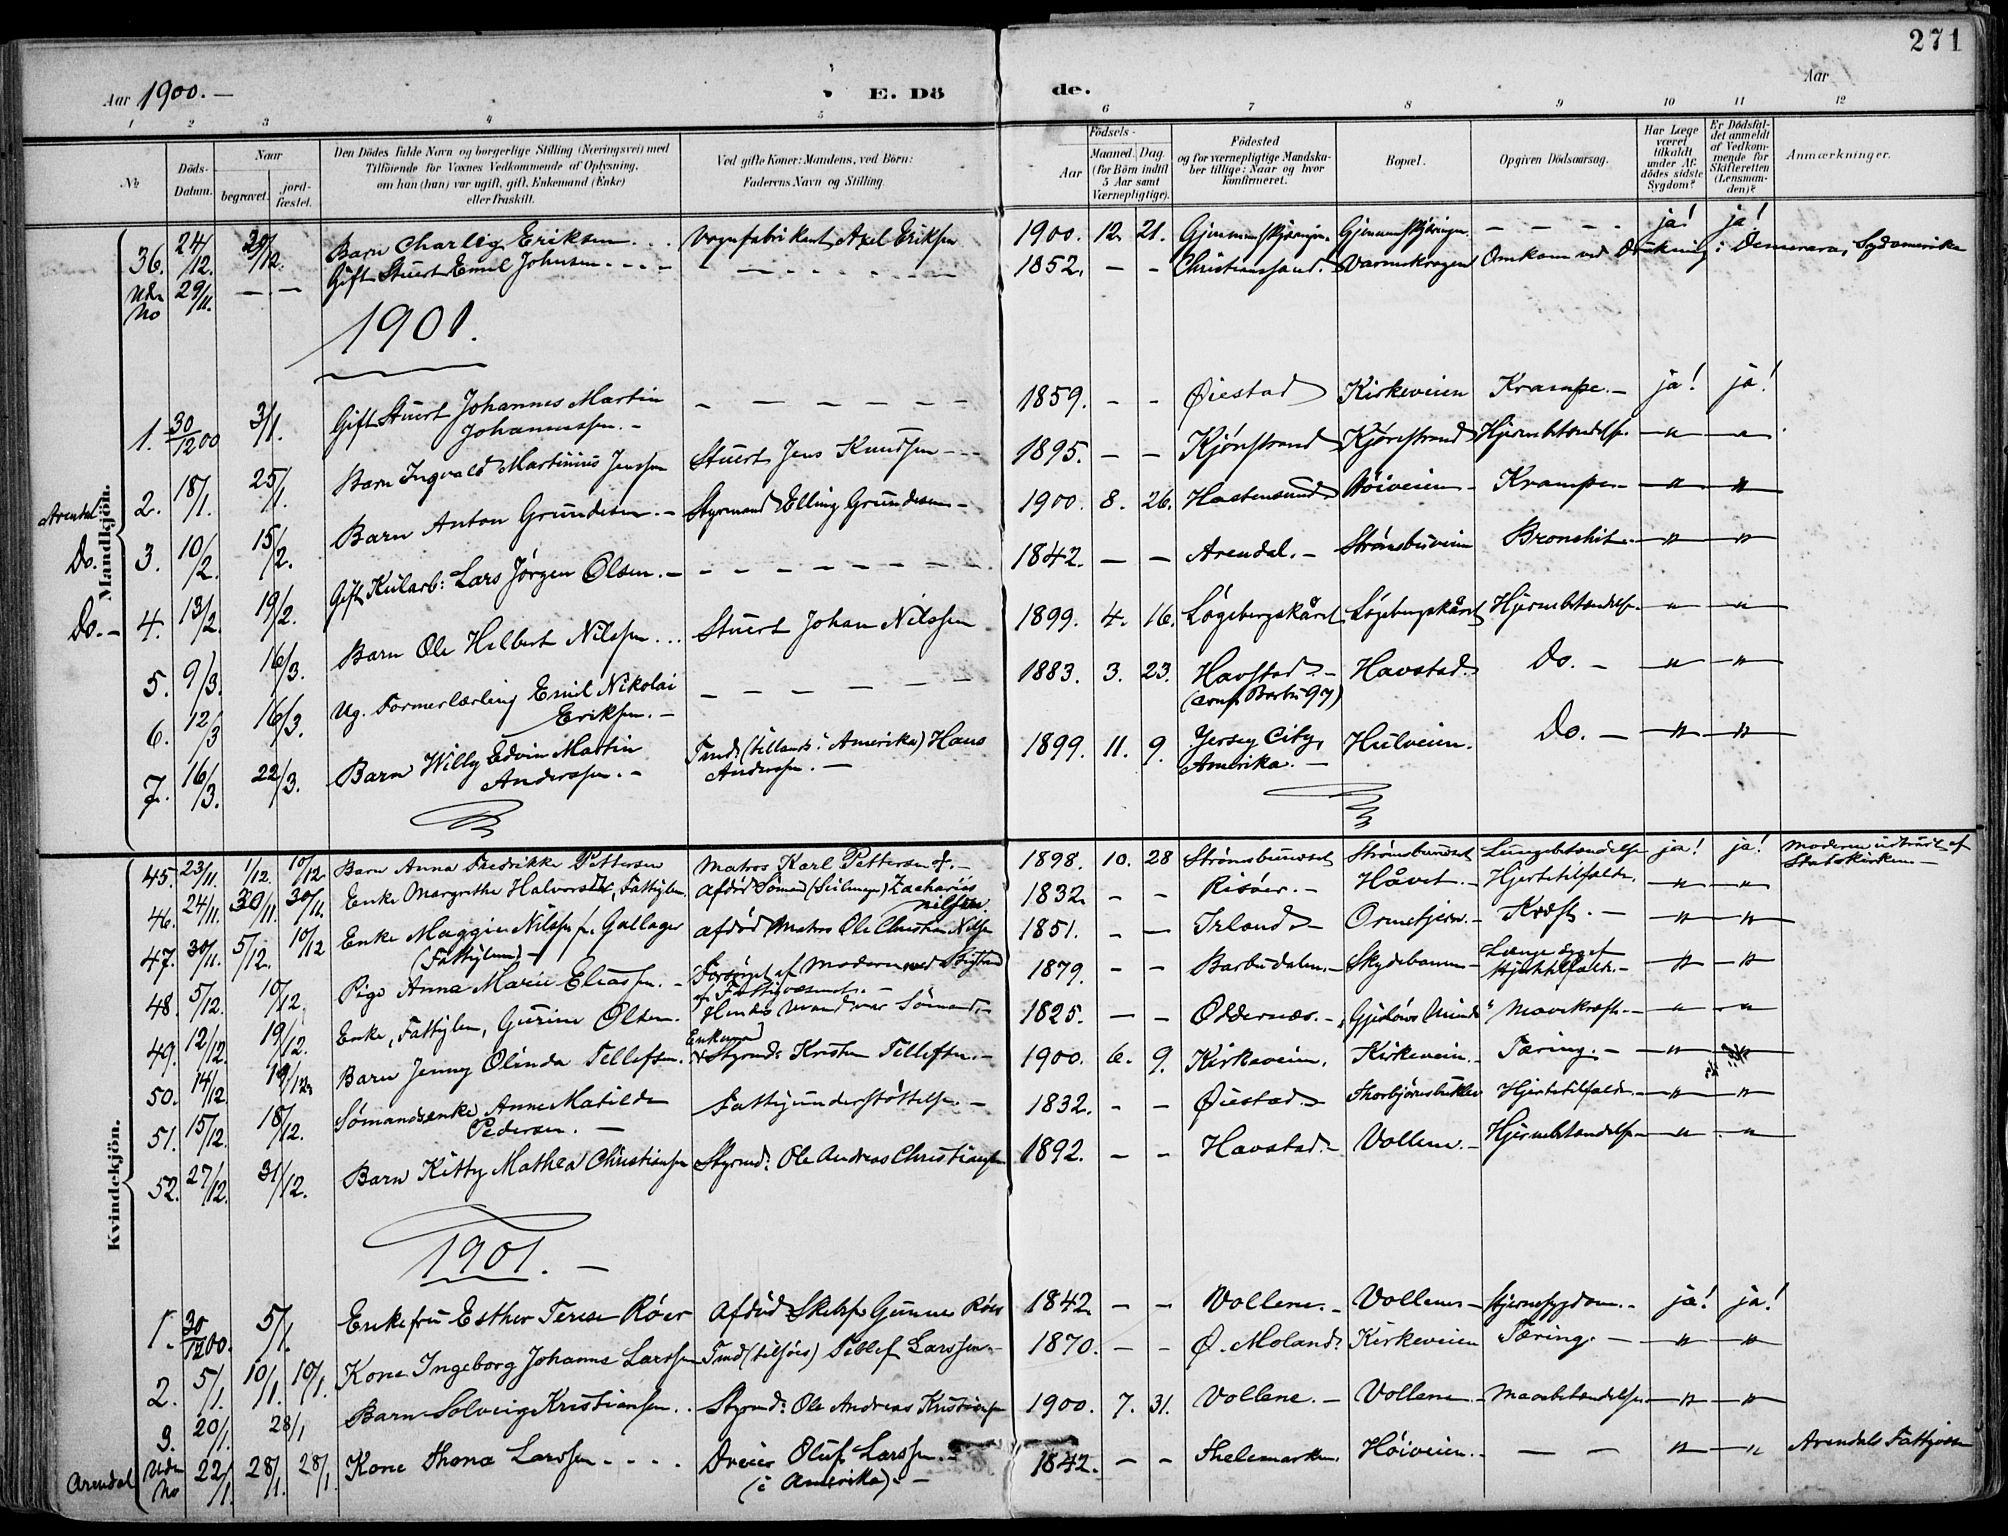 271
Aar 1900. —
E. Dö
de.
Aar
1 2 3 4 5 6 7 8 9 10 11 12
№
Döds-
Datum.
Naar
begravet.
jord-
fæstet.
Den Dödes fulde Navn og borgerlige Stilling (Næringsvei) med
Tilföiende for Voxnes Vedkommende af Oplysning,
om han (hun) var ugift, gift, Enkemand (Enke)
eller fraskilt.
Ved gifte Koner: Mandens, ved Börn:
Faderens Navn og Stilling.
Födsels-
Aar
Maaned. Dag.
(for Börn indtil
5 Aar samt
Værnepligtige).
Födested
og for værnepligtige Mandska-
ber tillige: Naar og hvor
konfirmeret.
Bopæl.
Opgiven Dödsaarsag.
Har Læge
været
tilkaldt
under Af-
dødes sidste
Sygdom?
Er Dödsfal-
det anmeldt
af Vedkom-
mende for
Skifteretten
(Lensman-
den)?
Anmærkninger.
Mandkjön.
36. 24/12. 30/12. Barn Charley Eriksen . . . Vognfabrikant Axel Eriksen 1900. 12. 21. — — — — ja! ja!
Udn No 29/11. — — Gift Stuert Emil Johnsen — — — — — 1852. — — Christianssand. Omkom ved Drukning i Demerara, Sydamerika
1901.
1. 30/12 00 3/1. Gift Stuert Johannes Martin
Johannessen. — — — — — 1859. — — Øiestad Kirkeveien Krampe. — ja! ja!
Arendal. 2. 18/1. 25/1. Barn Ingvald Martinius Jenssen Stuert Jens Knudsen — — 1895. — — Kjønstrand Kjønstrand Hjernebetændelse „ „
Do. 3. 10/2. 15/2. Barn Anton Grundesen. — Styrmand Elling Grundesen — 1900. 8. 26. Hastensund Høiveien — Krampe — „ „
Do. — 4. 13/2. 19/2. Gift Kularb: Lars Jørgen Olsen. — — — — — 1842. — — Arendal. — Strømsbuveien Bronchit. „ „
5. 9/3. 16/3. Barn Ole Hilbert Nilssen . . . Stuert Johan Nilssen 1899. 4. 16. Løgebergskåret Løgebergskåret Hjernebetændelse „ „
6. 12/3 16/3. Ug. Formerlærling Emil Nikolai
Eriksen. — — — — — 1883. 3. 23. Havstad —
(conf. Barbu 97) Havstad. Do. — „ „
7. 16/3. 22/3. Barn Willy Edvin Martin
Anderssen. — Tmd. (tillands i Amerika) Hans
Anderssen. — 1899. 11. 9. Jersey City,
Amerika. — Hulveien. Do. — „ „
Kvindekjön.
45. 23/11. 1/12. 10/12. Barn Anna Fredrikke Pettersen Matros Karl Pettersen 1898. 10. 28 Strømsbuneset Strømsbuneset Lungebetændelse ja! ja! Moderen udtraadt af
Statskirken —
46. 24/11. 30/11. 30/11. Enke Margrethe Halvorsen, Fattiglem afdød Sømd. Zacharias
Nilssen 1832. — — Risöer. — Håvet. — Hjertetilfælde. „ „
47. 30/11. 5/12. 10/12 Enke Maggie Nilssen f. Gallager
(Fattiglem) — afdød Matros Ole Christian Nilssen 1851. — — Irland — Kræft. — „ „
48. 5/12. 10/12. Pige Anna Marie Eliassen. — Forsørget af Moderen med Bistand
af Fattigvæsenet. — 1879. — — Barbudalen. — Skydebanen — Længe syg af
Hjertetilfælde. — „ „
49. 12/12. 19/12. Enke, Fattiglem, Gurine Olsen. Hendes Mand var Sømand. — 1825. — — Oddernæs. — „Gjeslows Minde“ Mavekræft. — „ „
50. 14/12. 19/12. Barn Jenny Olinda Tellefsen. Enkemd
Styrmd. Kristen Tellefsen. — 1900. 6. 9. Kirkeveien. Kirkeveien. Tæring. — „ „
51. 15/12. 18/12. Sømandsenke Anne Matilde
Pedersen. — Fattigunderstøttelse. — 1832. — — Øiestad. — Hjertetilfælde. — „ „
52. 27/12. 31/12. Barn Kitty Mathea Christiansen Styrmd: Ole Andreas Christiansen 1892. — — Havstad. — Vollene. — Hjernebetændelse „ „
1901. —
1. 30/12 00. 5/1. Enkefru Esther Terese Röer afdöd Gunne Röer 1842 — — Vollene. — Vollene — Hjernesygdom. — ja! ja!
2. 5/1. 10/1. 10/1. Kone Ingeborg Johanne Larssen Tmd (tilsjös) Tellef Larssen — 1870. — — Ø. Moland. Kirkeveien Tæring. — „ „
3. 20/1. 28/1 Barn Solveig Kristiansen . . Styrmd: Ole Andreas Kristiansen 1900. 7. 31. Vollene. — Vollene — „ „
Arendal Uden No 22/1. 28/1. 28/1. Kone Thona Larssen . . . . Dreier Oluf Larssen. —
(i Amerika). — 1842. — — Thelemarken. Høiveien. — — — „ „ Arendals Fattigvæsen